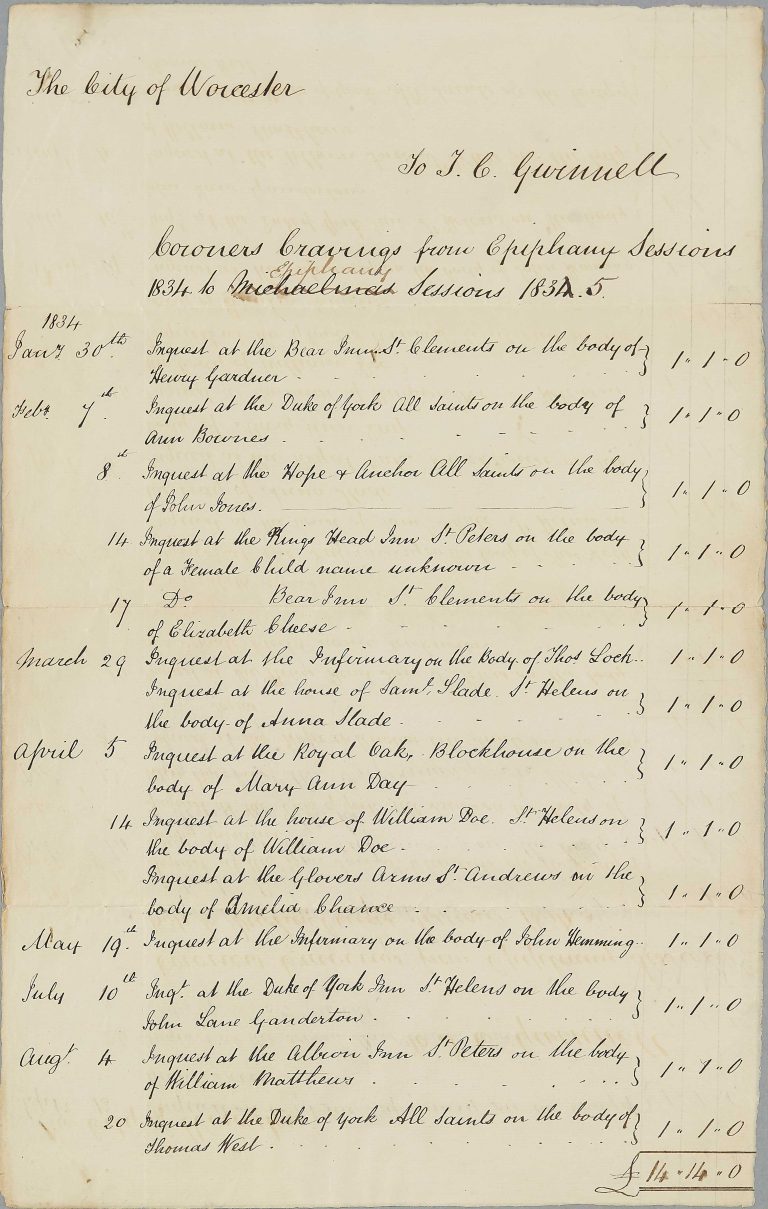 The City of Worcester
To T. C. Gwinnell
Coroners Cravings from Epiphany Sessions
Epiphany
1834 to Michaelmas Sessions 1834. 5.
1834
Jany 30th. Inquest at the Bear Inn St. Clements on the body of } 1 " 1 " 0
Henry Gardner - - - -
Feby. 7th. Inquest at the Duke of York All Saints on the body of } 1 " 1 " 0
Ann Bownes - - - -
8th. Inquest at the Hope & Anchor All Saints on the body } 1 " 1 " 0
of John Jones.
14 Inquest at the Kings Head Inn St Peters on the body } 1 " 1 " 0
of a Female Child name unknown - -
17 Do Bear Inn St Clements on the body } 1 " 1 " 0
of Elizabeth Cheese - - - -
March 29 Inquest at the Infirmary on the Body of Thos Lock .. 1 " 1 " 0
Inquest at the house of Saml. Slade St Helens on } 1 " 1 " 0
the body of Anna Slade - - - -
April 5 Inquest at the Royal Oak, Blockhouse on the } 1 " 1 " 0
body of Mary Ann Day
14 Inquest at the house of William Doe. St Helens on } 1 " 1 " 0
the body of William Doe - - - -
Inquest at the Glovers Arms St Andrews on the } 1 " 1 " 0
body of Amelia Chance - - - -
May 19th. Inquest at the Infirmary on the body of John Hemming .. 1 " 1 " 0
July 10th Inqt. at the Duke of York Inn St Helens on the body } 1 " 1 " 0
John Lane Ganderton - - - -
Augt. 4 Inquest at the Albion Inn St Peters on the body } 1 " 1 " 0
of William Matthews - - - -
20 Inquest at the Duke of York All Saints on the body of } 1 " 1 " 0
Thomas West - - - -
£ 14 " 14 " 0